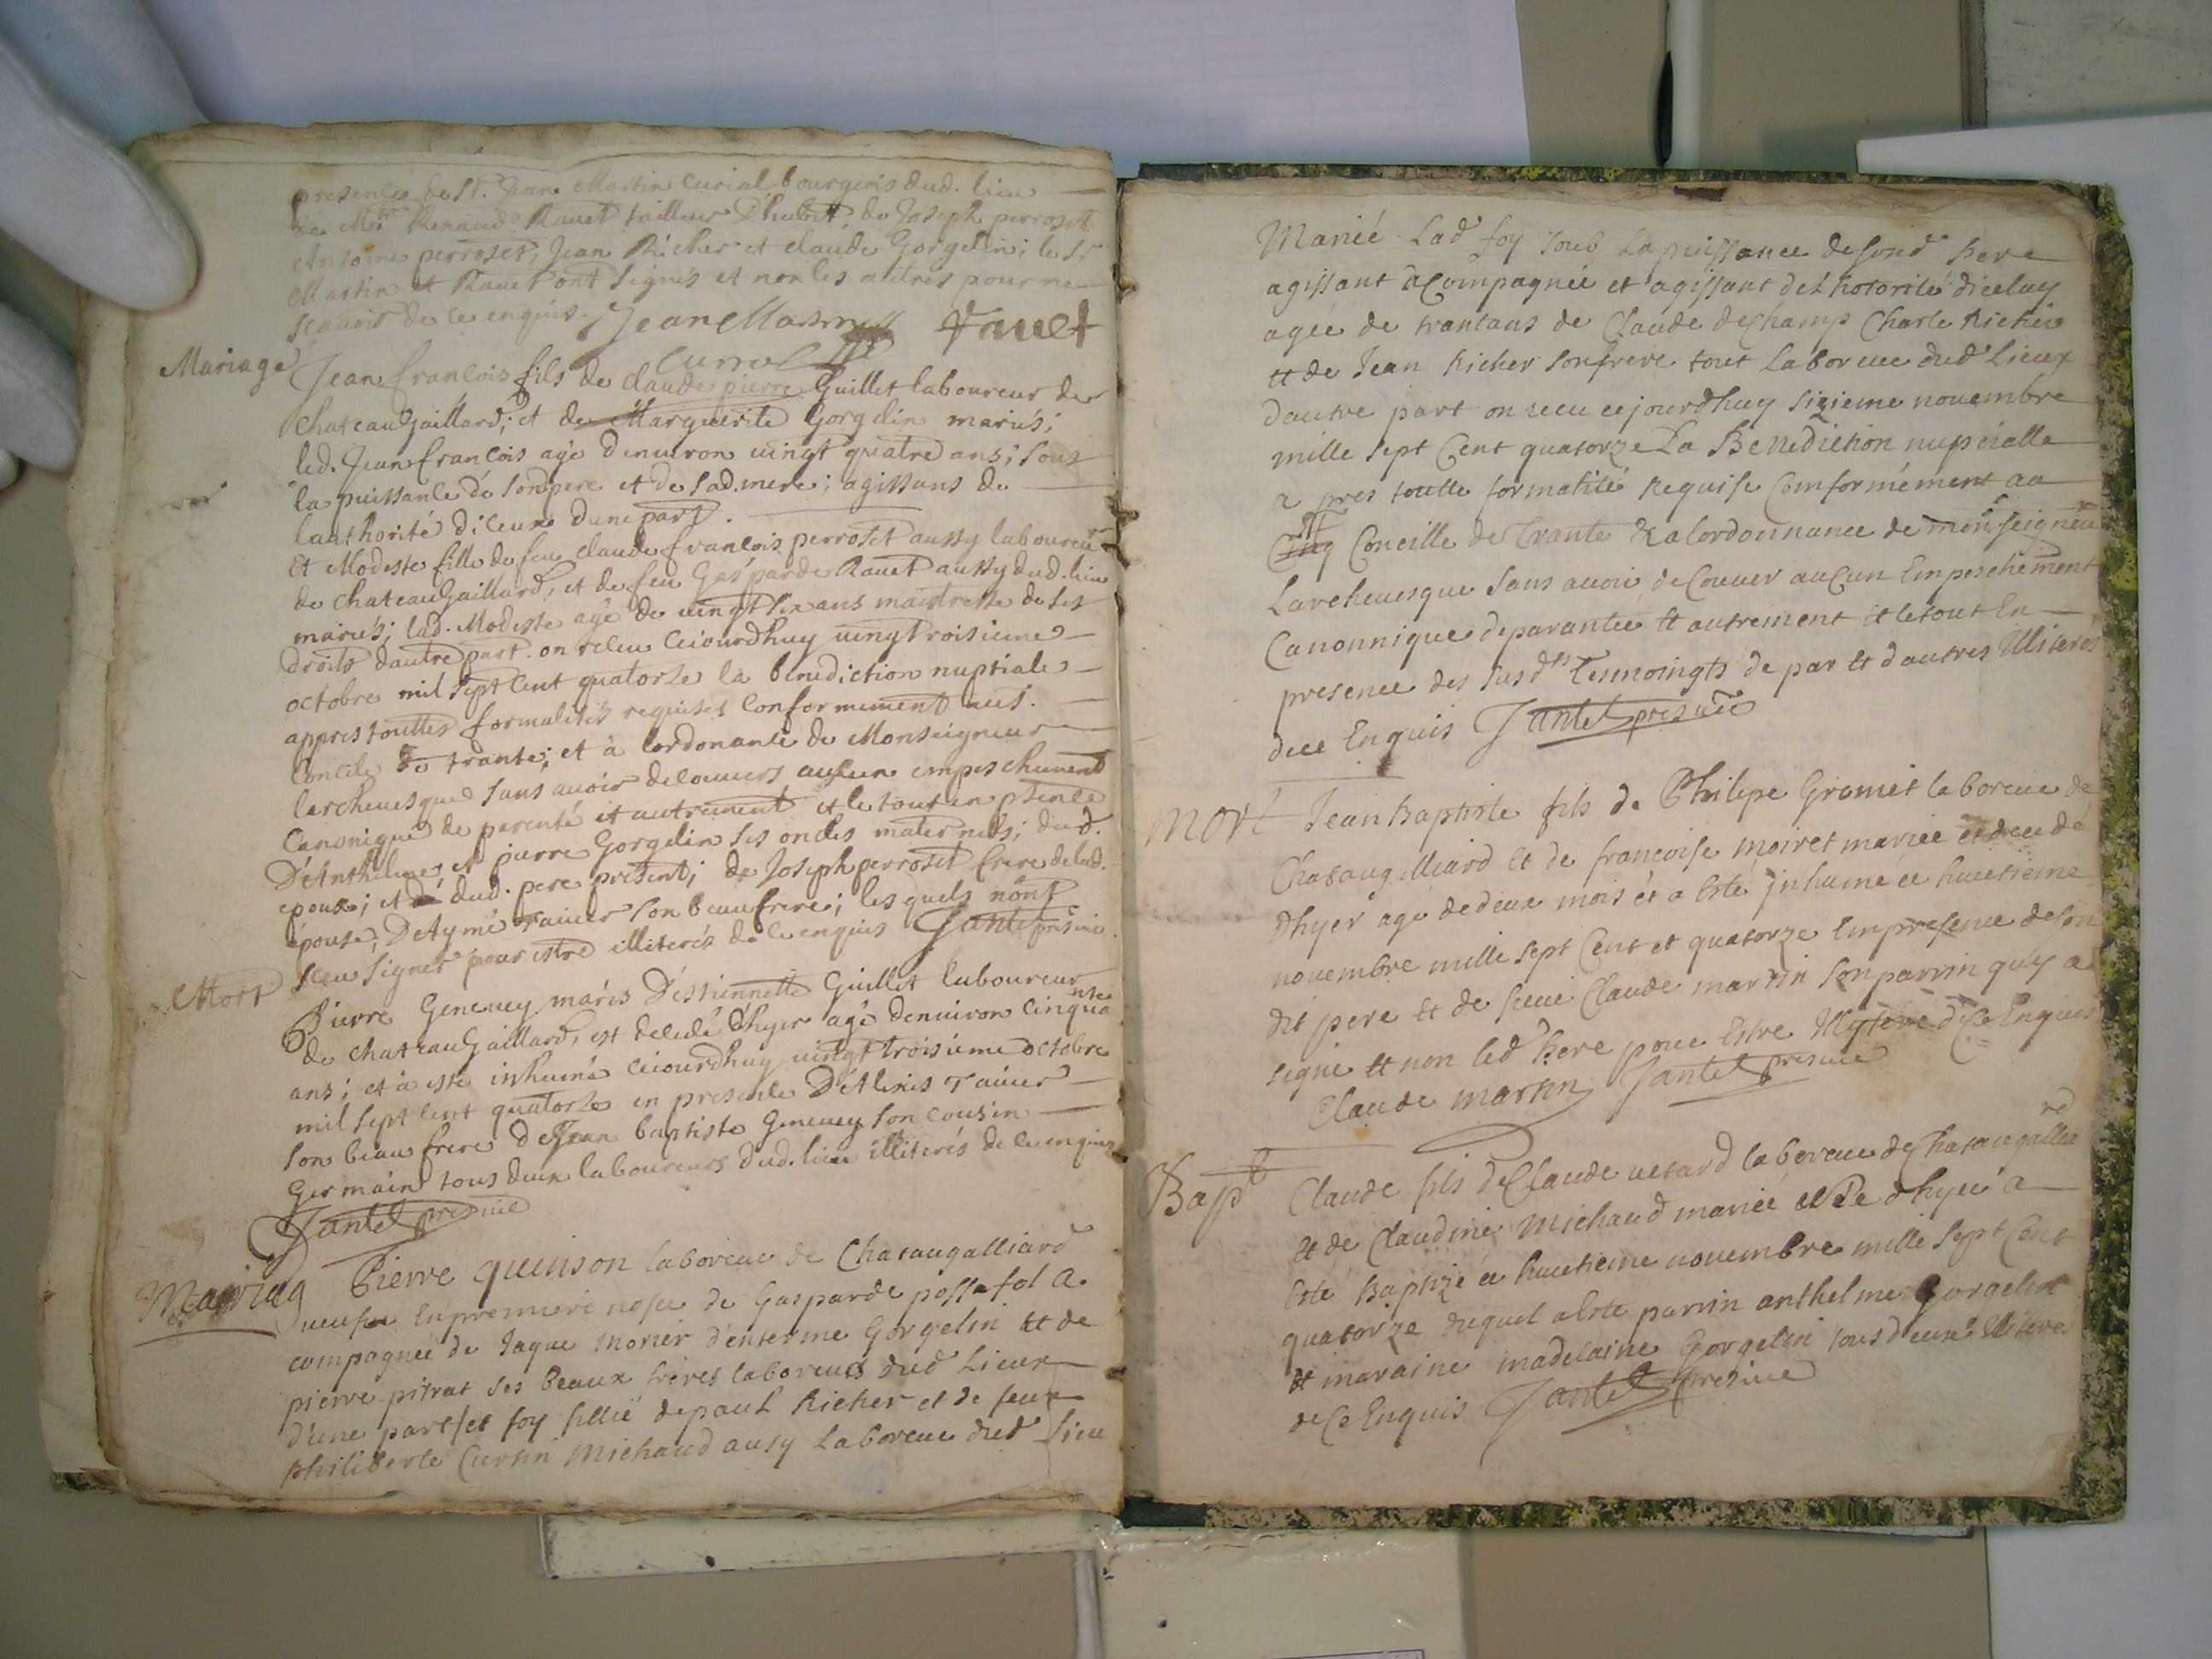 presences de Sr. Jean Martin curial bourgeois dud. lieu
de Mtre Renaud Rauet tailleur D'habit, de Joseph perroset
Antoine perroset, Jean Richer et claude Gorgelin; le Sr
Martin et Rauet ont signés et non les autres pour ne
scauoir de ce enquis. Jean Martin Rauet
curial
Mariage
Jean francois fils de claude pierre Guillet laboureur de
chateauGaillard; et de Marguerite Gorgelin mariés;
led. Jean francois agé d'enuiron uingt quatre ans; sous
la puissance de son pere et de sad. mere; agissans de
lauthorité diceux dune part.
Et Modeste fille de feu claude francois perroset aussy laboureur
de chateauGaillard, et de feu Gasparde Rauet aussy dud. lieu
mariés; lad. Modeste agé de uingt six ans maistresse de ses
droits dautre part. on receu ceiourdhuy uingtroisieme
octobre mil sept cent quatorze la benediction nuptiale
appres touttes formalités requises conformement au s.
concile de trante; et à lordonance de Monseigneur
larcheuesque sans auoir decouuers aucun empeschement
canonique de parenté et autrement et le tout en psence
D'Anthelme, et pierre Gorgelin ses oncles maternels; dud.
epoux; et dud. pere present; de Joseph perroset frere de lad.
épouse, D'Aymé rauier son beaufrere; les quels n'ont
sceu signer pour estre illiterés de ce enquis Jantet pns uic.
Mort
Pierre Geneuey maris D'estiennette Guillet laboureur
de chateauGaillard, est decedé d'hyer agé denuiron cinquante
ans; et à esté inhumé ceiourdhuy uingt troisieme octobre
mil sept cent quatorze en presence D'Alexis rauier
son beau frere de Jean baptiste Geneuey son cousin
Germain tous deux laboureurs dud. lieu illiterés de ce enquis
Jantet pre uic
Mariag
Pierre quinson laboreue de Chataugalliard
ueufue en premiere nose de Gasparde possafol a
compagneé de Jaque morier d'enterme Gorgelin et de
pierre pitrat ses beaux frères laboreus dud Lieux
d'une part et foy fillie de paul Richer et de feue
philiberte Curtin Michaud ausy Laboreue dud Lieu
Marieé Lad foy soub La puissance de sond Pere
agissant acompagneé et agissant de Lhotorité dicelay
agée de trantans de Claude dechamp Charle Richer
et de Jean Richer son frere tout Laboreue dud Lieux
dautre part on receu cejourdhuy sizieme nouembre
mille sept Cent quatorze La Benediction nupcialle
a pres toutte formalité Requise Comformément au
Concille de Trante & a lordonnance de monseigneur
Larcheuesque sans auoir deCouuer auCun Empeschement
Canonnique deparantée et autrement et letout En
presence des susdts Tesmoingts de par et dautres Illiterés
dece Enquis Jantet pres uic
Mort
Jean Baptiste fils de Philipe Gromet laboreue de
Chataugalliard et de francoise moiret mariée et decedé
Dhyer agé dedeux mois et a Esté inhumé ce huetieme
nouembre mille sept Cent et quatorze Empresence de son
dit pere et de sieur Claude martin son parrin quy a
signé et non led Pere pour Estre Illytere deCe Enquis
Claude martin Jantet pres uic
Bapt
Claude fils de Claude uetard laboreue de Chataugalliard
et de Claudine Michaud marieé Dhyer a
Esté Baptizé ce huetieme nouembre mille sept Cent
quatorze duquel a Esté parrin anthelme Gorgelin
et maraine madelaine Gorgelin tous deux Illiterés
deCe Enquis Jantet pres uic